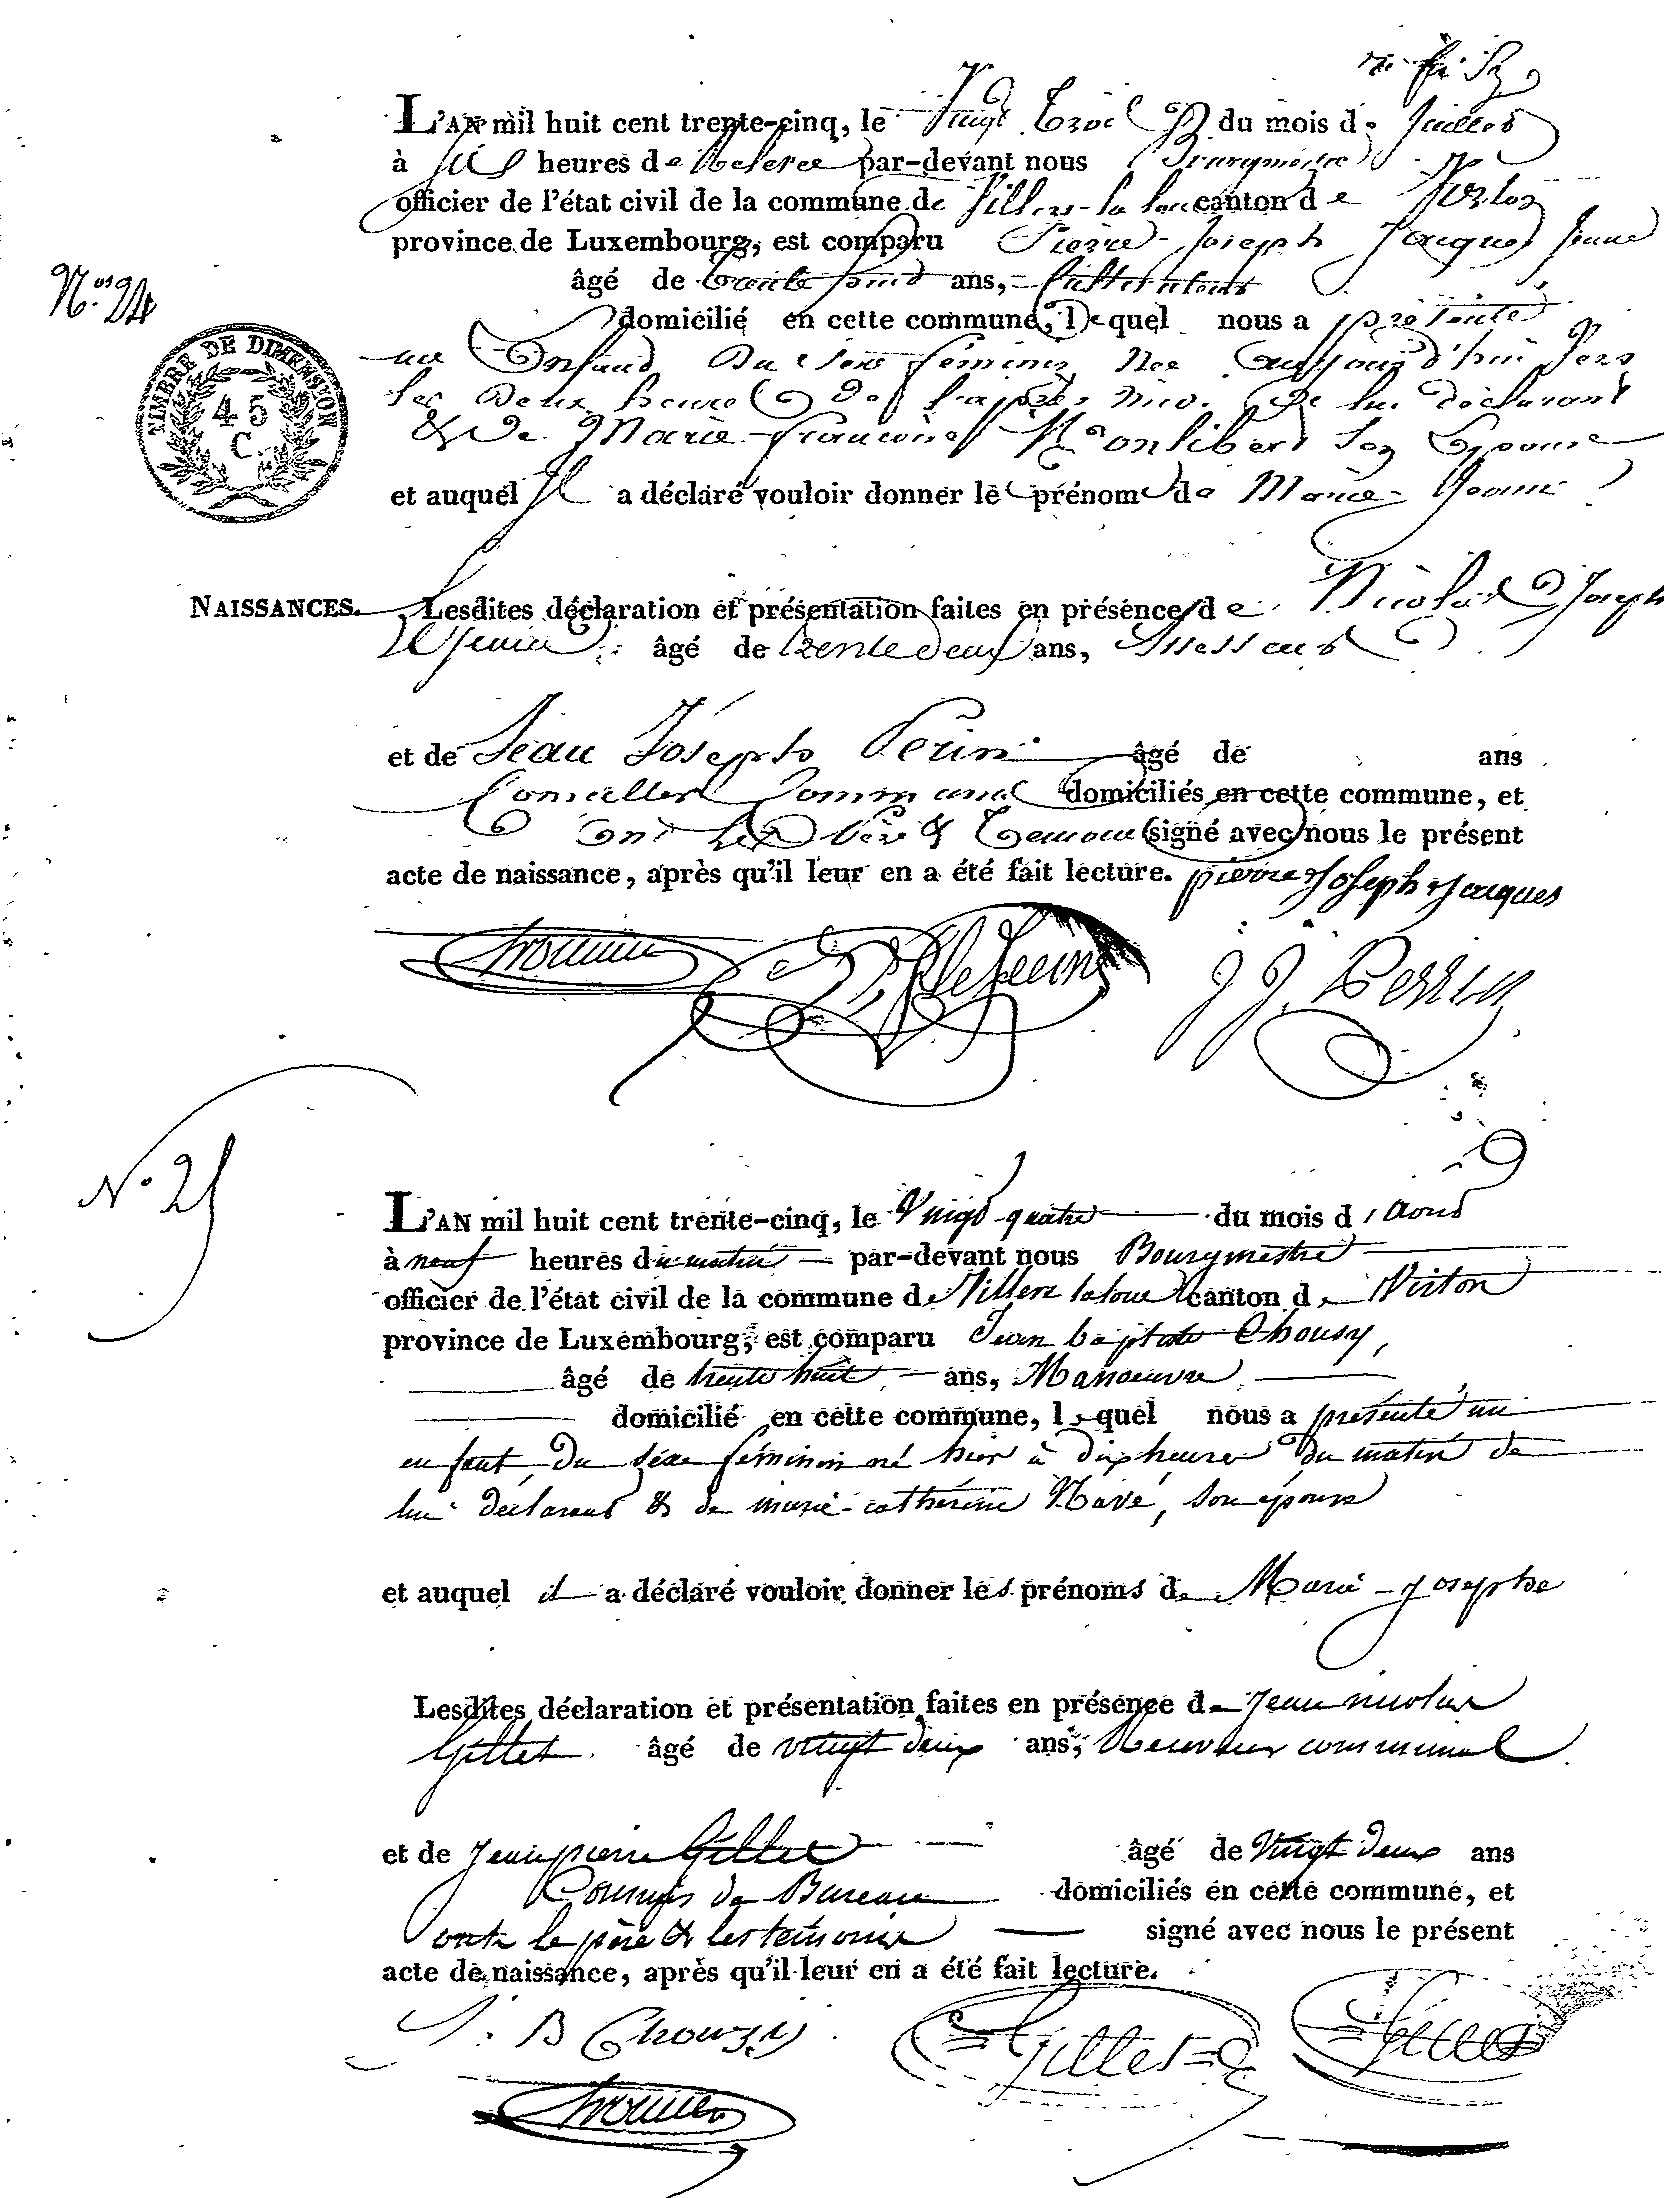 L'AN mil huit cent trente-cinq, le Vingt Trois du mois de Juillet
à six heures de Relevée par-devant nous Bourgmestre
officier de l'état civil de la commune de Villers-la-loue canton de Virton
province de Luxembourg, est comparu Pierre-Joseph Jacques Jeune
âgé de trente ans, Cultivateur
domicilié en cette commune, Lequel nous a présenté
un Enfant Du sexe féminin Née aujourd'hui Vers
N.os 24
TIMBRE DE DIMENSION
45
C.
les Deux heures De l'après midi De lui déclarant
& De Marie françoise Monlibert Son Epouse
et auquel Il a déclaré vouloir donner le prénom de Marie-Jeanne
NAISSANCES.
Lesdites déclaration et présentation faites en présence de Nicolas Joseph
Lejeune âgé de trente deux ans, Assesseur
et de Jean Joseph Perin âgé de ans
Conseiller Communal domiciliés en cette commune, et
Ont Les Père & Temoins signé avec nous le présent
acte de naissance, après qu'il leur en a été fait lecture. pierre Joseph Jacques
J J. Perrin
N.o 25
L'AN mil huit cent trente-cinq, le Vingt-quatre du mois d'Aout
à neuf heures du matin par-devant nous Bourgmestre
officier de l'état civil de la commune de Villers-la-loue canton de Virton
province de Luxembourg, est comparu Jean baptiste Chousy,
âgé de trente huit ans, Manoeuvre
domicilié en cette commune, lequel nous a présenté un
enfant, du sexe féminin né hier à dix heures du matin de
lui déclarant & de marie-cathérine Navé, son épouse
et auquel il a déclaré vouloir donner les prénoms de Marie-Josephe
Lesdites déclaration et présentation faites en présence de Jean nicolas
Gillet âgé de vingt deux ans, Receveur communal
et de Jean pierre Gillet âgé de Vingt deux ans
Commis de Bureau domiciliés en cette commune, et
ont le père & les témoins signé avec nous le présent
acte de naissance, après qu'il leur en a été fait lecture.
J. B Chouzy Gillet Gillet